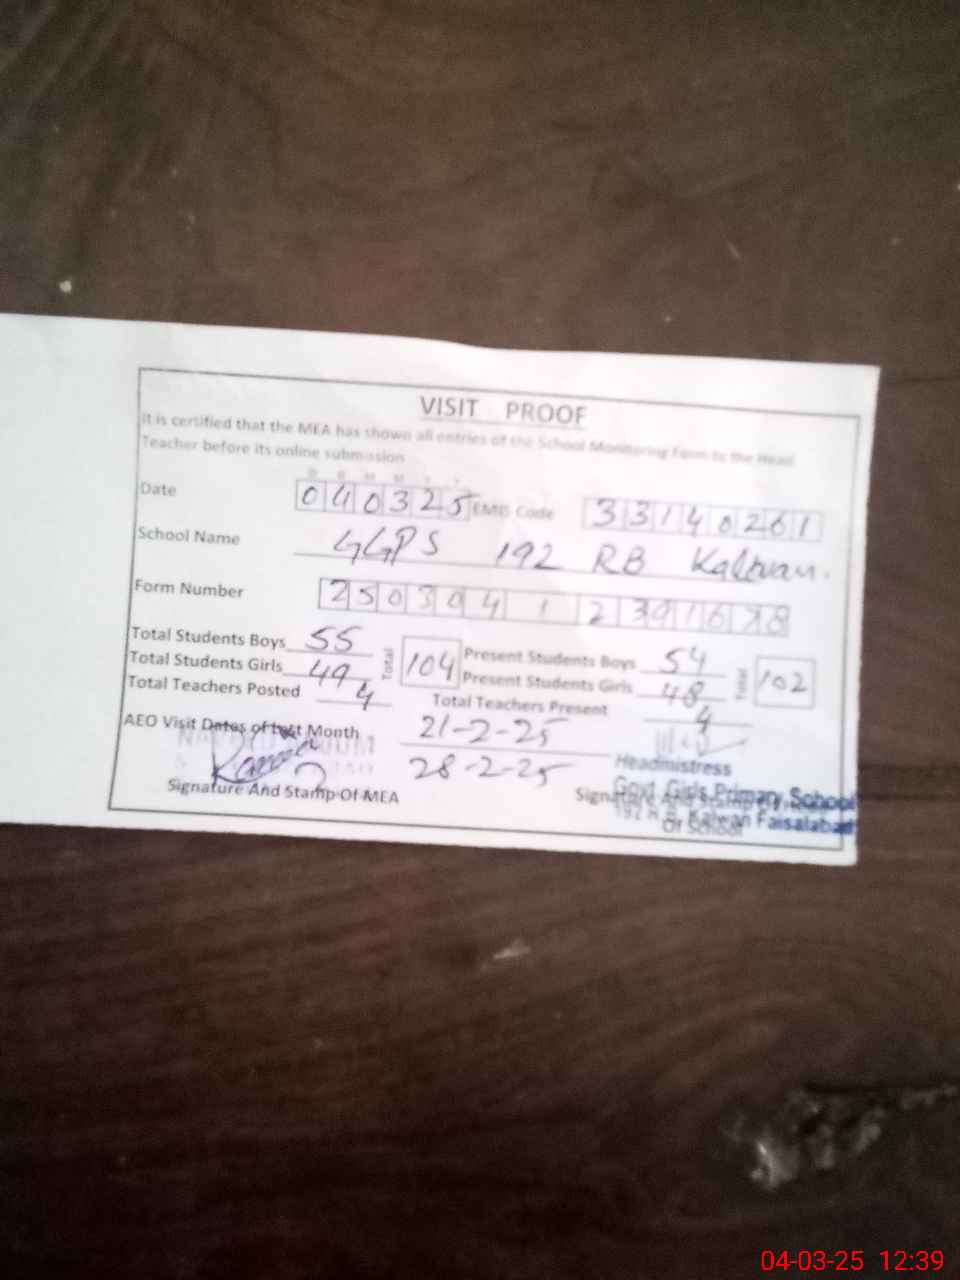 VISIT PROOF
It is certified that the MEA has shown all entries of the School Monitoring Form to the Head
Teacher before its online submission
Date 040325 EMIS Code 33140261
School Name GGPS 192 RB Kalwan.
Form Number
Total Students Boys 55 Total 104 Present Students Boys 54 Total 102
Total Students Girls 49 Present Students Girls 48
Total Teachers Posted 4 Total Teachers Present 4
AEO Visit Dates of Last Month 21-2-25
28-2-25
Headmistress
Govt. Girls Primary School
Kalwan Faisalabad
Signature And Stamp Of MEA
Of School
04-03-25 12:39